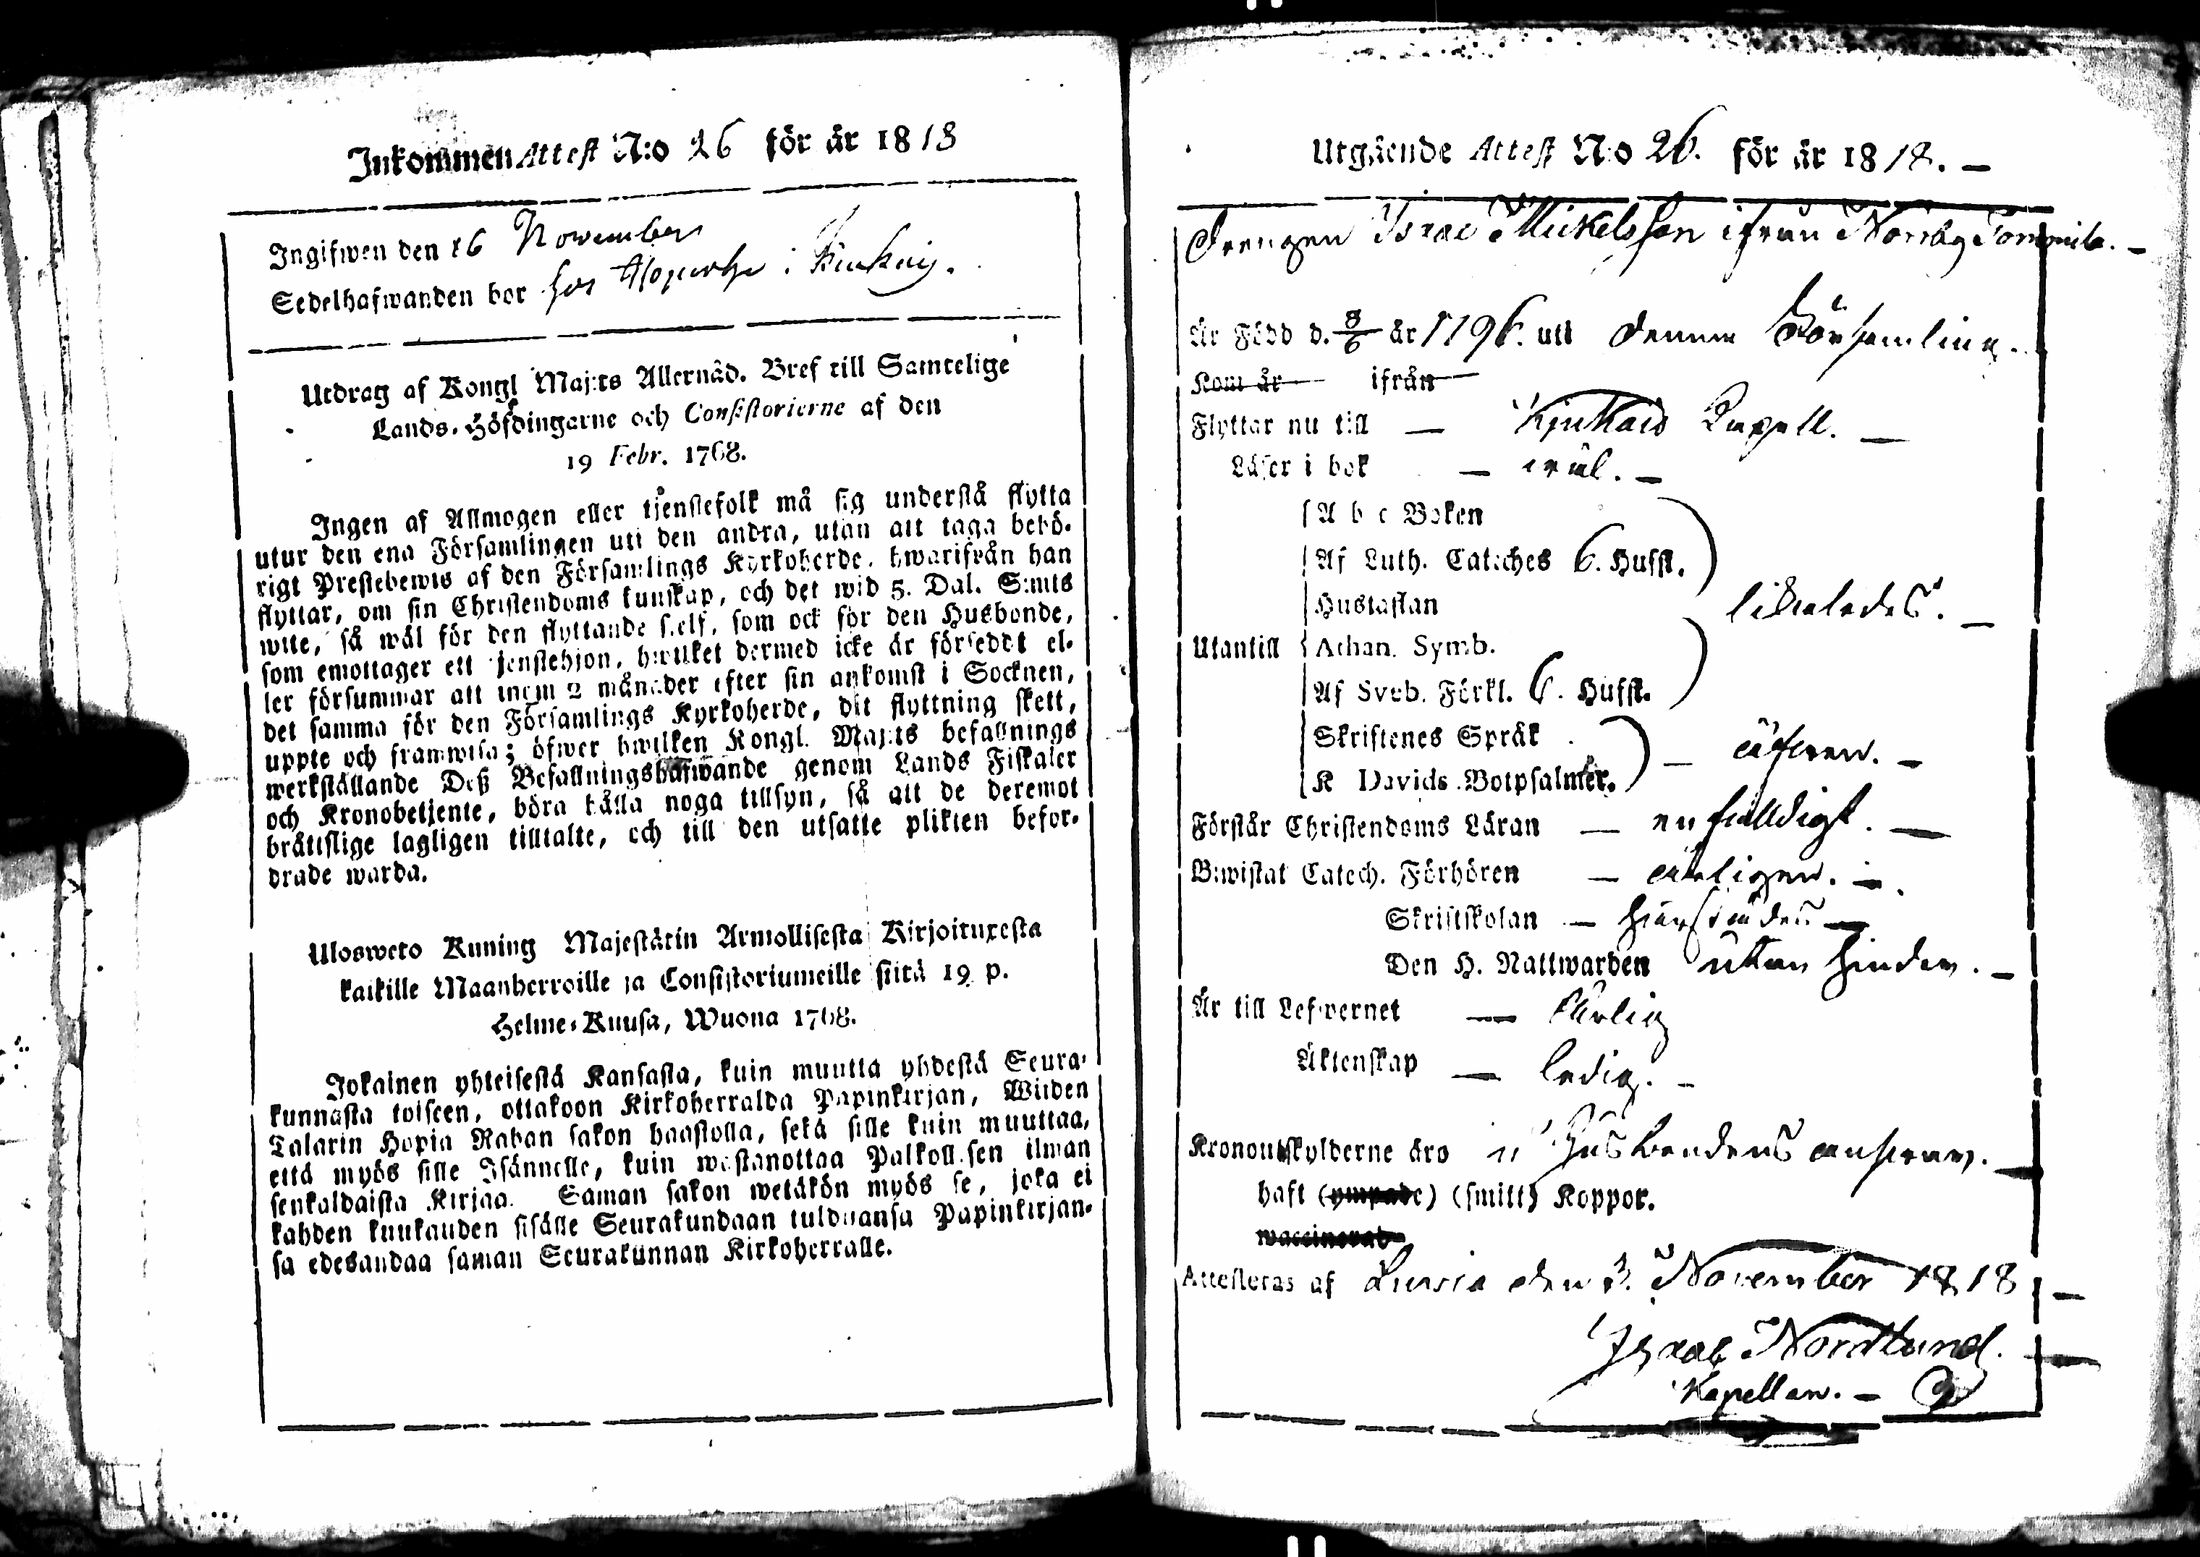 Inkommen Attest N:o 26 för år 1818
Ingifwen den 16 November
Sedelhafwanden bor hos
Utdrag af Kongl Maj:ts Allernåd. Bref till Samtelige
Lands-Höfdingarne och Consistorierne af den
19 Febr. 1768.
Ingen af Allmogen eller tjenstefolk må sig understå flytta
utur den ena Församlingen uti den andra, utan att taga behö-
rigt Prestebewis af den Församlings Kyrkoherde, hwarifrån han
flyttar, om sin Christendoms kunskap, och det wid 5. Dal. S:mts
wite, så wäl för den flyttande sjelf, som ock för den Husbonde,
som emottager ett tjenstehjon, hwilket dermed icke är förseddt el-
ler försummar att inom 2 månader efter sin ankomst i Socknen,
det samma för den Församlings Kyrkoherde, dit flyttning skett,
uppte och framwisa; öfwer hwilken Kongl. Maj:ts befallnings
werkställande Deß Befallningshafwande genom Lands Fiskaler
och Kronobetjente, böra hålla noga tillsyn, så att de deremot
bråttslige lagligen tilltalte, och till den utsatte plikten befor-
drade warda.
Ulosweto Kuning Majestätin Armollisesta Kirjoituxesta
kaikille Maanherroille ja Consistoriumeille siitä 19 p.
Helme-Kuusa, Wuona 1768.
Jokainen yhteisestä Kansasta, kuin muutta yhdestä Seura-
kunnasta toiseen, ottakoon Kirkoherralda Papinkirjan, Wiiden
Talarin Hopia Rahan sakon haastolla, sekä sille kuin muuttaa,
että myös sille Isännelle, kuin wastanottaa Palkollisen ilman
senkaldaista Kirjaa. Saman sakon wetäkön myös se, joka ei
kahden kuukauden sisälle Seurakundaan tulduansa Papinkirjan-
sa edesandaa saman Seurakunnan Kirkoherralle.
Utgående Attest N:o 26. för år 1818. —
Drengen Isaac Mickelsson ifrån Norrby Tommila. —
Är Född d. 8/6 år 1796. uti denna Församling.
Kom år ifrån
Flyttar nu till — Kjukais Capell. —
Läser i bok — wäl. —
A b c Boken
Af Luth. Cateches 6. Hufst.
Hustaflan
likaledes. —
Utantill
Athan. Symb.
Af Sveb. Förkl. 6. Hufst.
Skriftenes Språk
K Davids Botpsalmer. — äfwen. —
Förstår Christendoms Läran — enfalldigt. —
Biwistat Catech. Förhören — årligen. —
Skriftskolan — hwarsIndes —
Den H. Nattwarden utan hinder. —
Är till Lefwernet — Ärlig
Äktenskap — ledig. —
Kronoutskylderne äro i Husbondens answar. —
haft (ympade) (smitt) Koppor.
waccinerad
Attesteras af Luvia den 3. November 1818 —
Isaac Nordlund. —
Kapellan. —